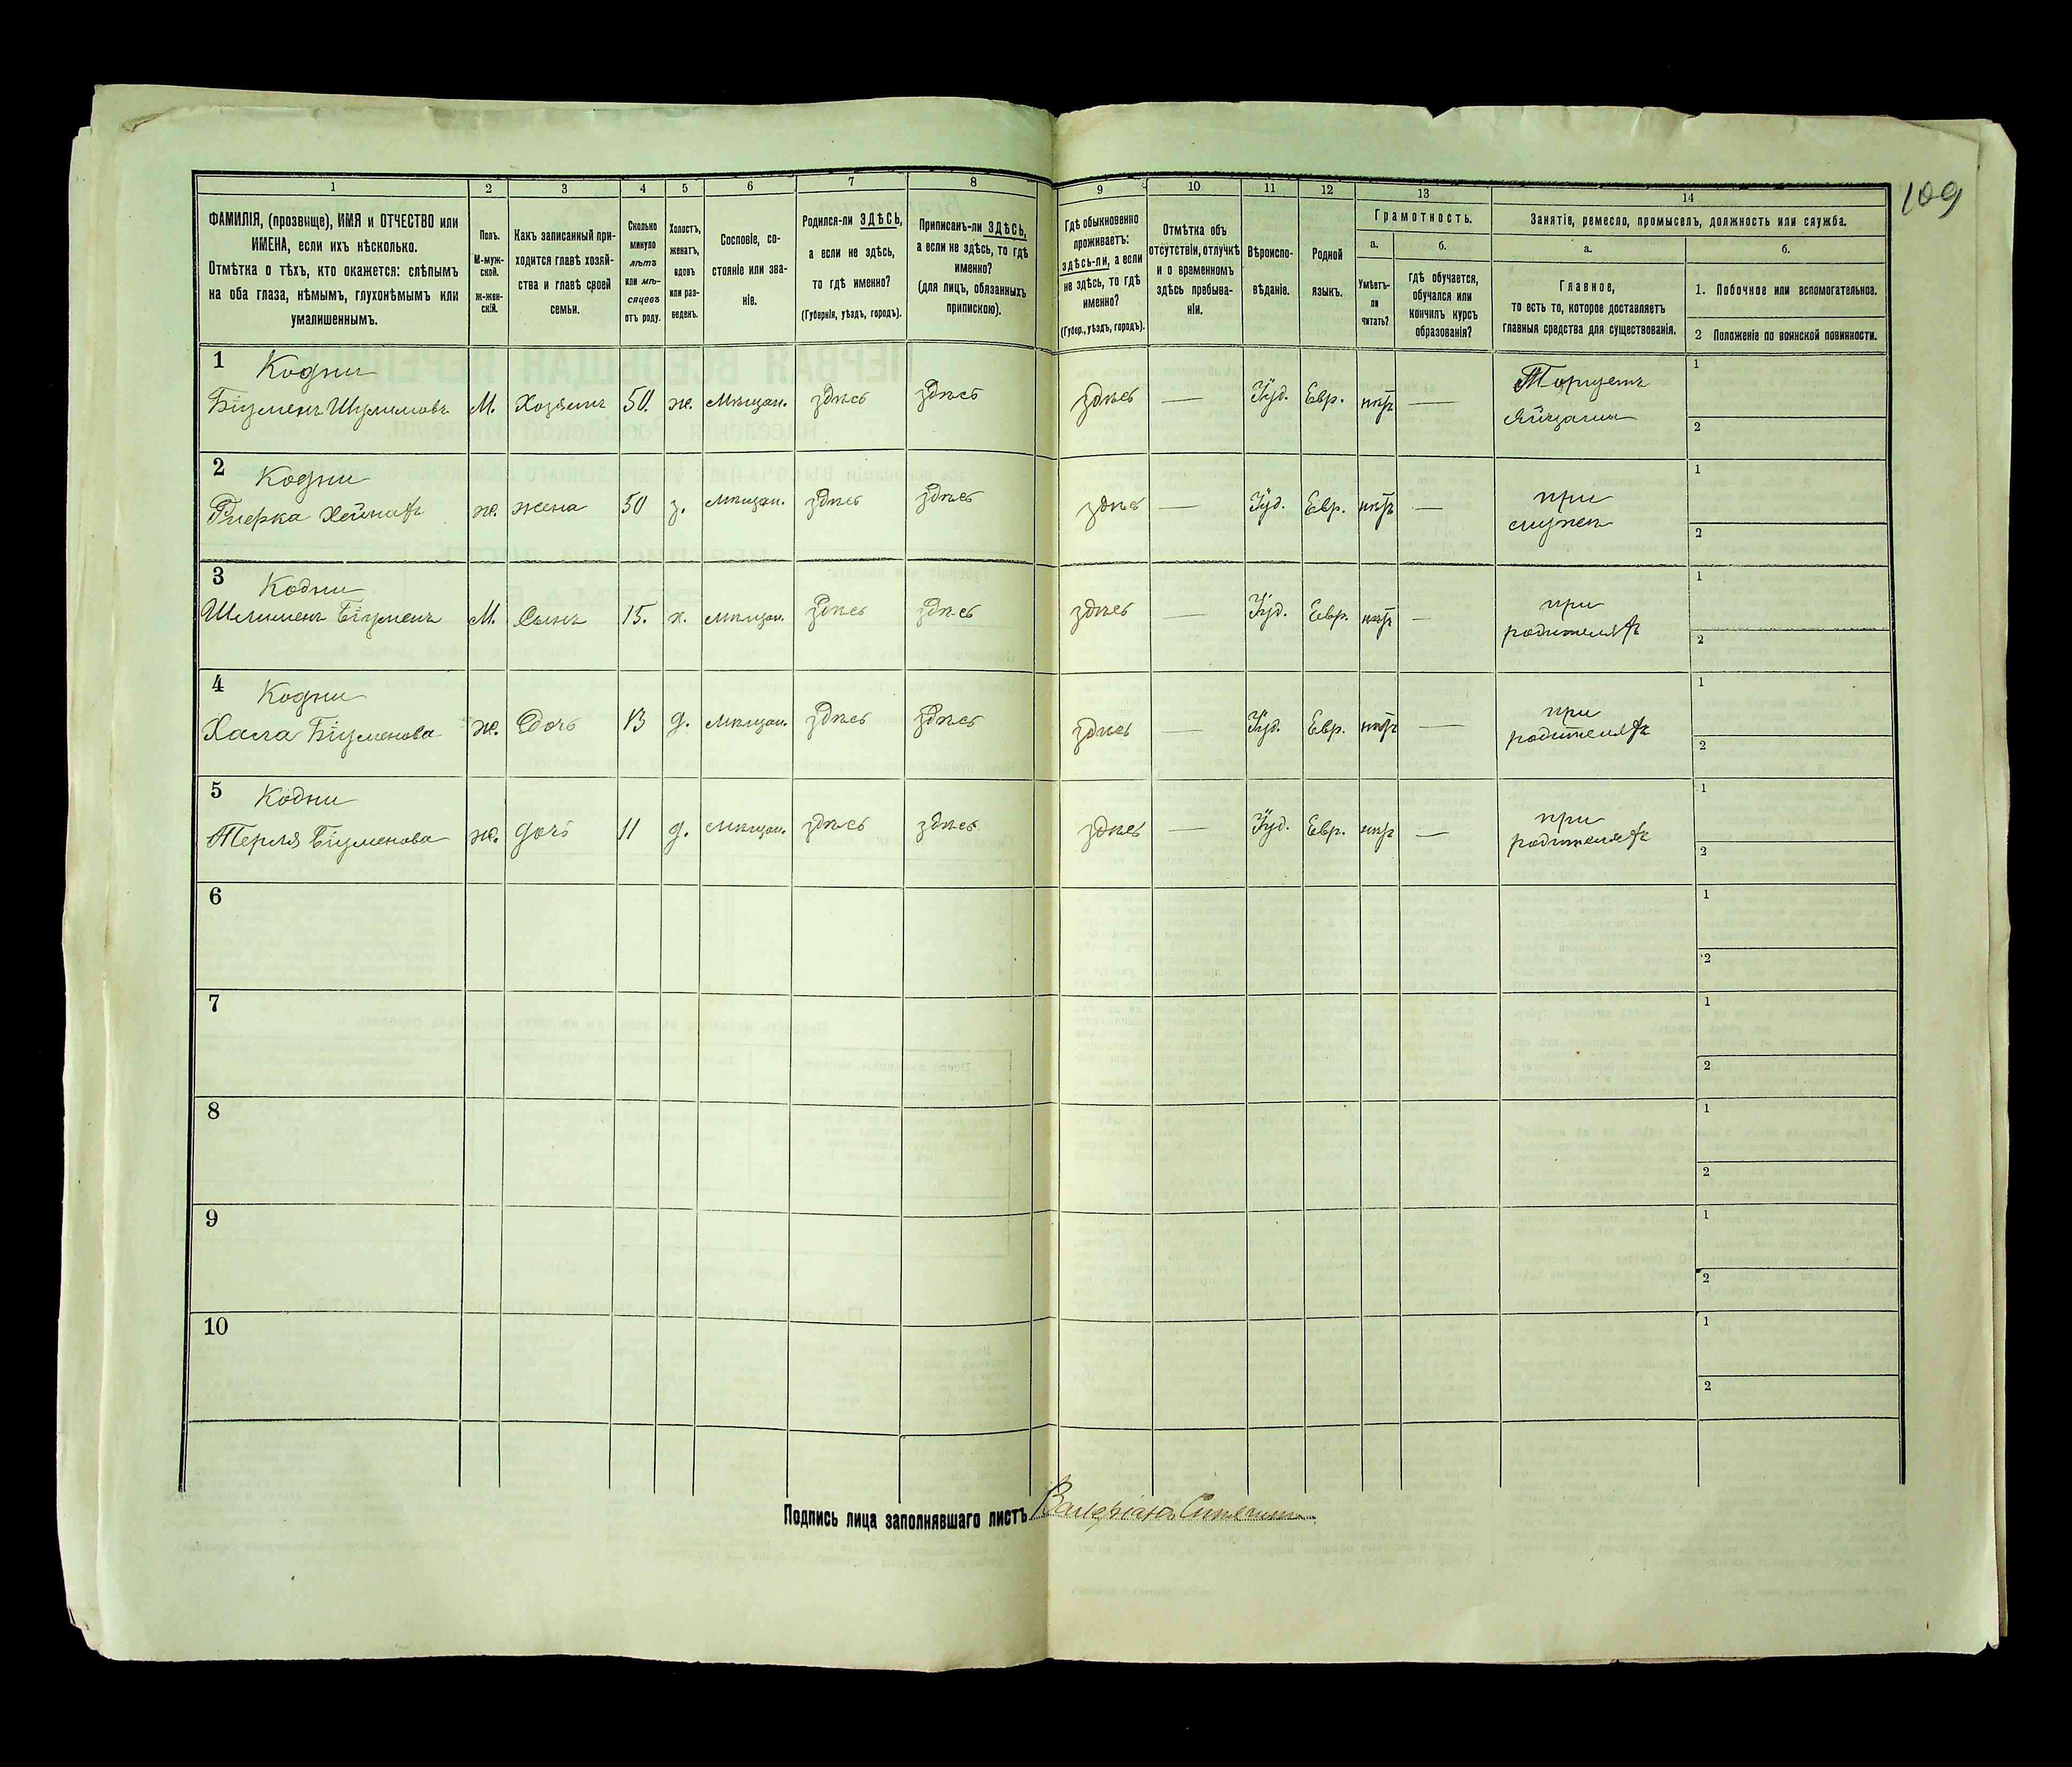 109
1 2 3 4 5 6 7 8 9 10 11 12 13 14
ФАМИЛІЯ, (прозвище), ИМЯ и ОТЧЕСТВО или
ИМЕНА, если ихъ нѣсколько.
Отмѣтка о тѣхъ, кто окажется: слѣпымъ
на оба глаза, нѣмымъ, глухонѣмымъ или
умалишеннымъ.
Полъ.
М-муж-
ской.
ж-жен-
скій.
Какъ записанный при-
ходится главѣ хозяй-
ства и главѣ своей
семьи.
Сколько
минуло
лѣтъ
или мѣ-
сяцевъ
отъ роду.
Холостъ,
женатъ,
вдовъ
или раз-
веденъ.
Сословіе, со-
стояніе или зва-
ніе.
Родился-ли ЗДѢСЬ,
а если не здѣсь,
то гдѣ именно?
(Губернія, уѣздъ, городъ).
Приписанъ-ли ЗДѢСЬ,
а если не здѣсь, то гдѣ
именно?
(для лицъ, обязанныхъ
припискою).
Гдѣ обыкновенно
проживаетъ:
здѣсь-ли, а если
не здѣсь, то гдѣ
именно?
(Губер., уѣздъ, городъ).
Отмѣтка объ
отсутствіи, отлучкѣ
и о временномъ
здѣсь пребыва-
ніи.
Вѣроиспо-
вѣданіе.
Родной
языкъ.
Грамотность.
а.
Умѣетъ-
ли
читать?
б.
гдѣ обучается,
обучался или
кончилъ курсъ
образованія?
Занятіе, ремесло, промыселъ, должность или служба.
а.
Главное,
то есть то, которое доставляетъ
главныя средства для существованія.
б.
1. Побочное или вспомогательное.
2 Положеніе по воинской повинности.
1 Кодни Торгуетъ 1
М. Хозяинъ 50. ж. Мѣщан. здѣсь здѣсь здѣсь — Іуд. Евр. нѣтъ — яйцами 2
2 Кодни при 1
ж. жена 50 з. Мѣщан. здѣсь здѣсь здѣсь — Іуд. Евр. нѣтъ — мужѣ 2
3 Кодни при 1
М. Сынъ 15. х. Мѣщан. здѣсь здѣсь здѣсь — Іуд. Евр. нѣтъ — родителяхъ 2
4 Кодни при 1
ж. Дочь 13 д. Мѣщан. здѣсь здѣсь здѣсь — Іуд. Евр. нѣтъ — родителяхъ 2
5 Кодни при 1
ж. дочь 11 д. Мѣщан. здѣсь здѣсь здѣсь — Іуд. Евр. нѣтъ — родителяхъ 2
6 1
2
7 1
2
8 1
2
9 1
2
10 1
2
Подпись лица заполнявшаго листъ